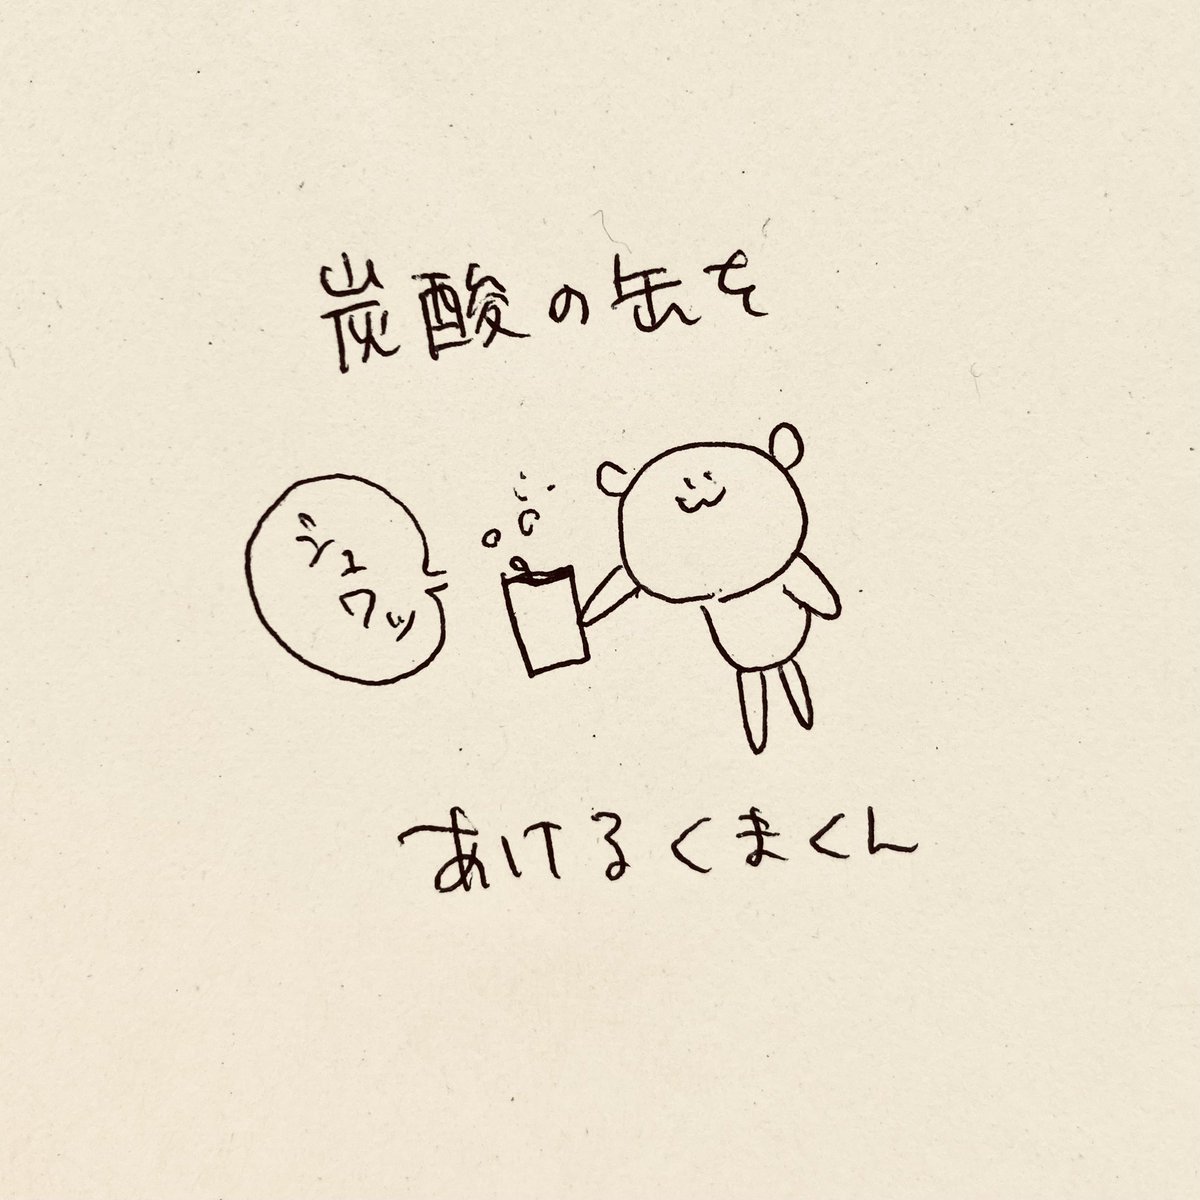 炭酸の缶を
シュ
ワッ
あけるくまくん